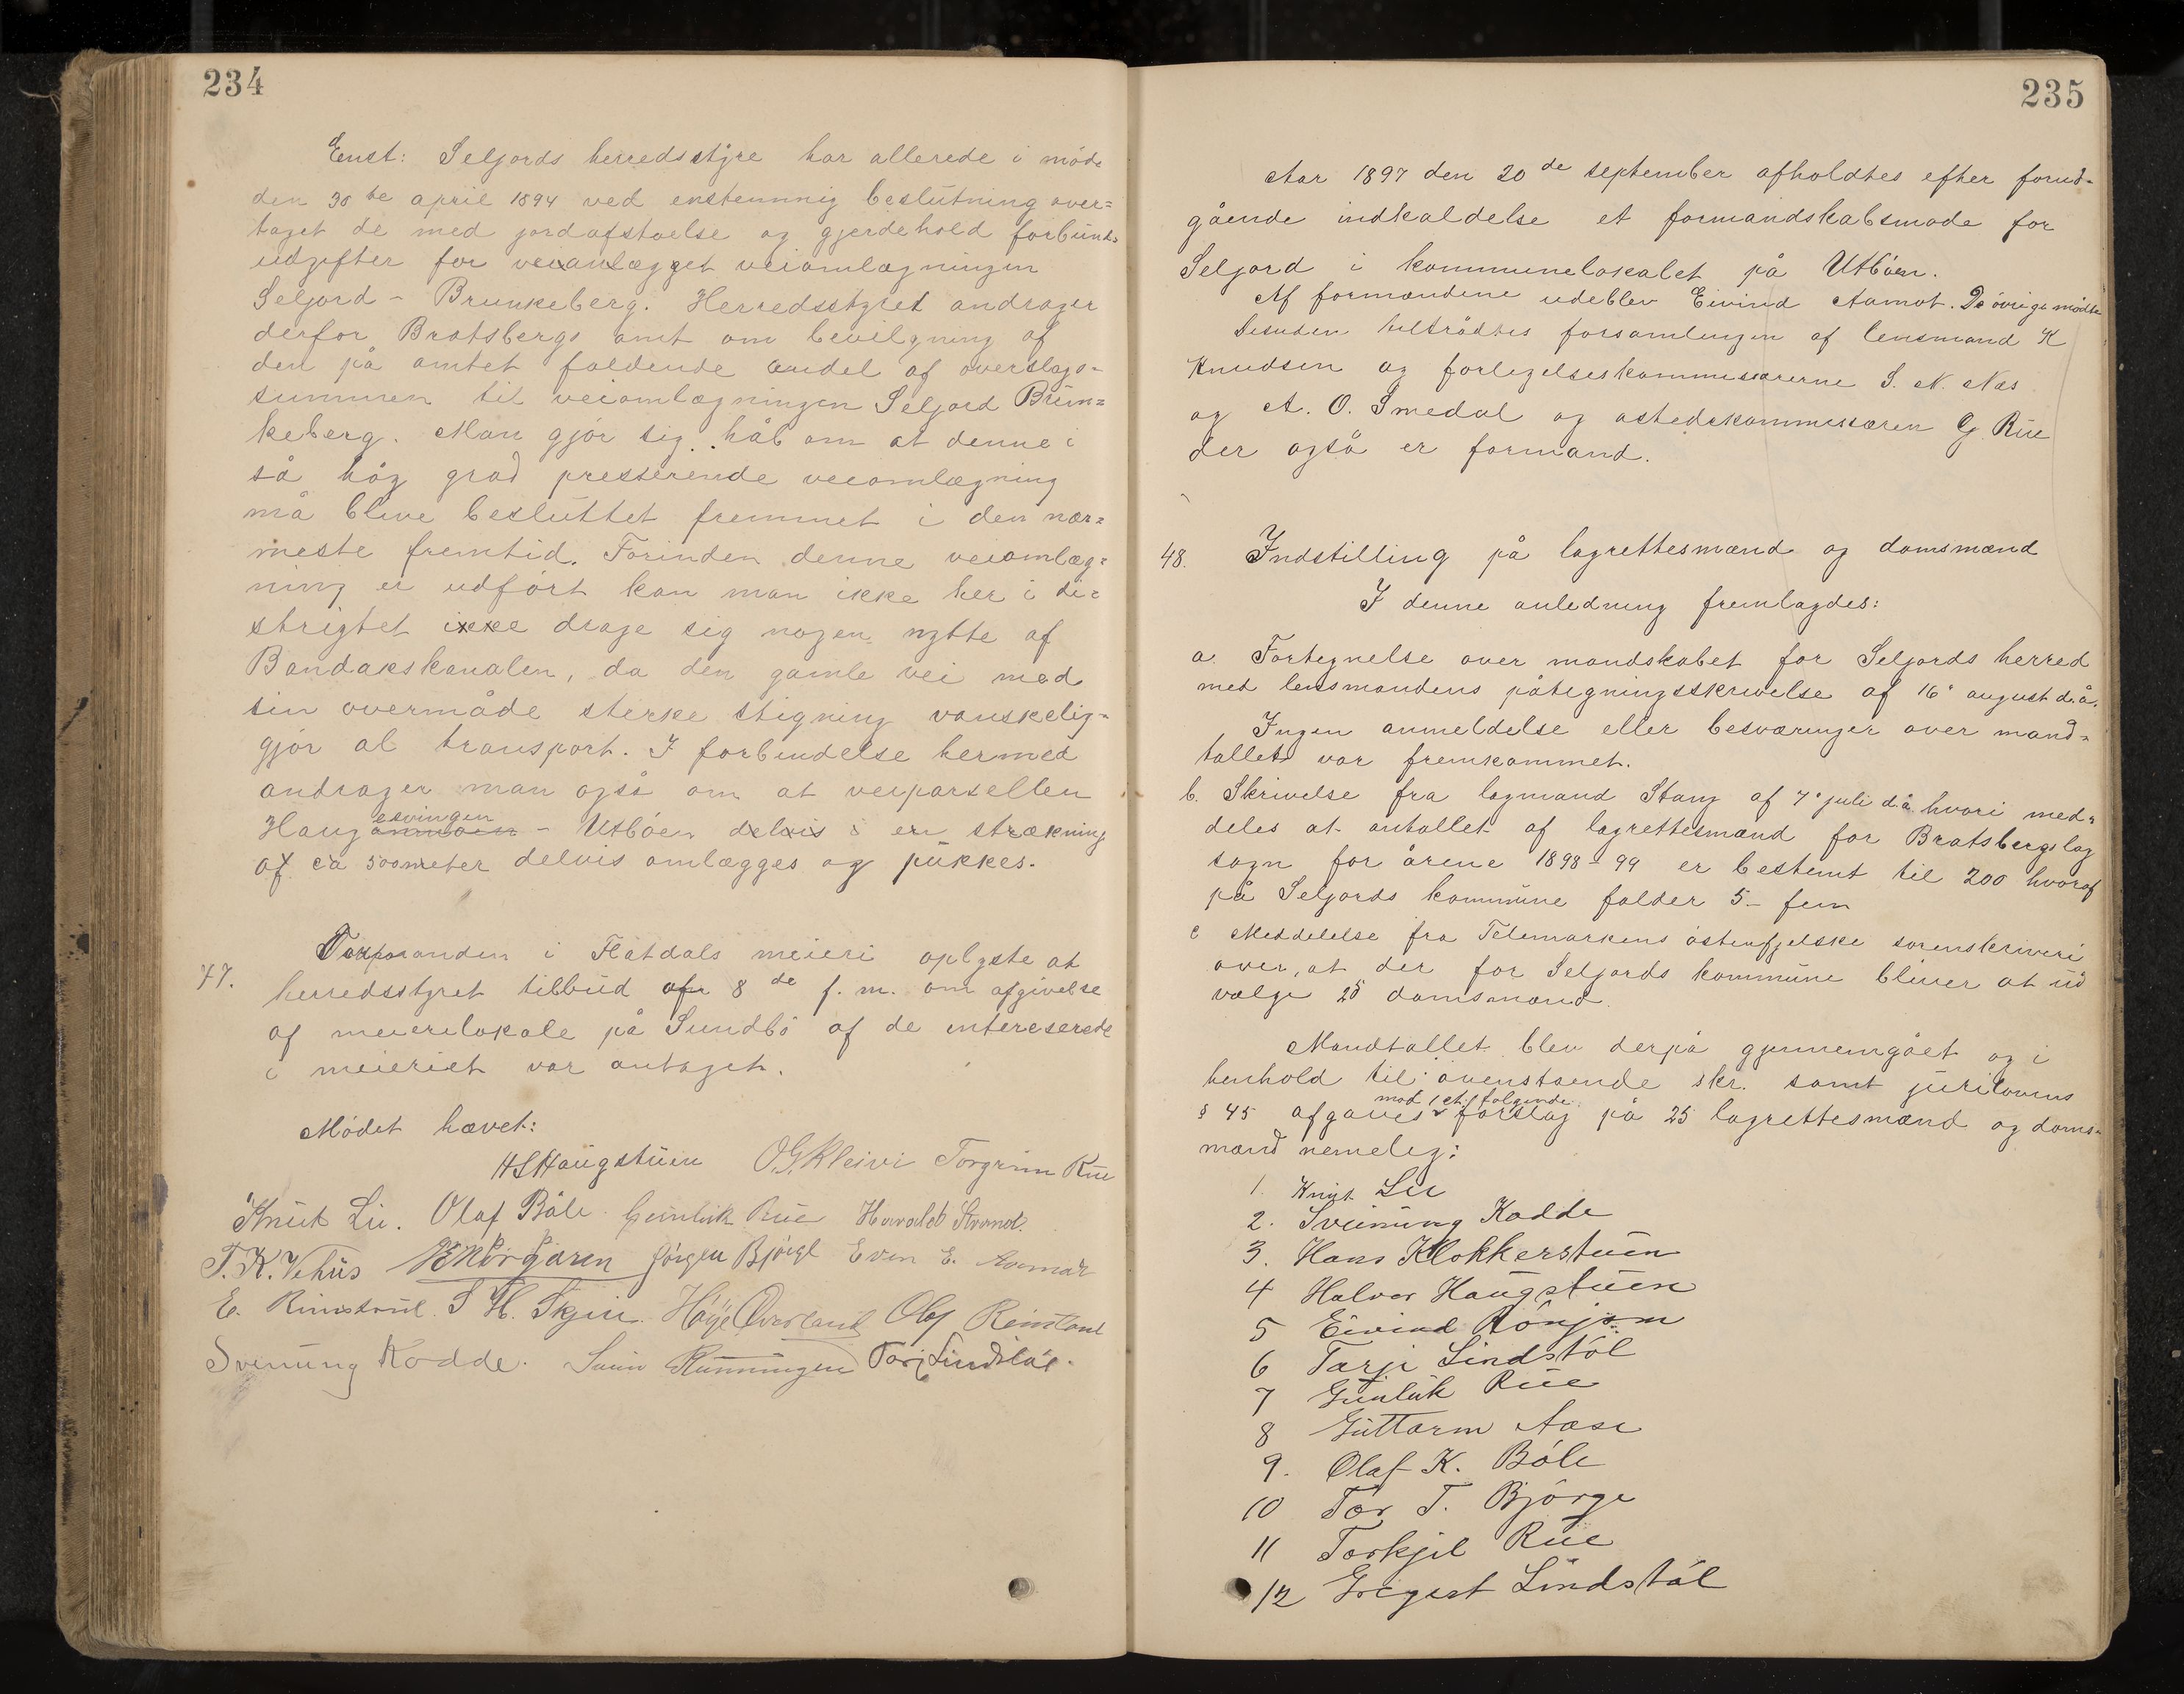 234
Enst: Seljords herredsstyre har allerede i möde
den 30te april 1894 ved enstemmig beslutning over=
taget de med jordafstaelse og gjerdehold forbund.
udgifter for veianlægget veiomlægningen
Seljord - Brunkeberg. Herredsstyret andrager
derfor Bratsbergs amt om bevilgning af
den på amtet faldende andel af overslags-
summen til veiomlægningen Seljord Brun=
keberg. Man gjör sig håb om at denne i
så hög grad presserende veiomlægning
må blive besluttet fremmet i den nær=
meste fremtid. Forinden denne veiomlæg=
ning er udfört kan man ikke her i di=
strigtet ikke drage sig nogen nytte af
Bandakskanalen, da den gamle vei med
sin overmåde sterke stigning vanskelig=
gjör al transport. I forbindelse hermed
andrager man også om at veiparsellen
Haugesvingen - Utböen delvis i en strækning
af ca 500 meter delvis omlægges og pukkes.
47. i Flatdals meieri oplyste at
herredsstyret tilbud af 8de f. m. om afgivelse
af meierilokale på Sundbö af de intereserede
i meieriet var antaget.
Mödet hævet:
HSHaugstuen O.G.Kleivi Torgrim Rue
Knut Lie. Olaf Böle. Gunleik Rue Havald Strand.
T. K. Vehus Jörgen Björge Even E.
E. Rimstvul. S H. Skjin. Höye Overland Olaf Reinstaul
Svenung Kodde. Svein Runningen Tarj Lindstöl.
235
Aar 1897 den 20de september afholdtes efter forud-
gående indkaldelse et formandskabsmøde for
Seljord i kommunelokalet på Utböen.
Af formændene udeblev Eivind Aamot. De övrige mödte
Desuden tiltrådtes forsamlingen af lensmand K
Knudsen og forligelseskommissærerne S. N. Næs
og A. O. Smedal og astedskommissæren G. Rue
der også er formand.
48. Indstilling på lagrettesmænd og domsmænd
I denne anledning fremlagdes:
a. Fortegnelse over mandskabet for Seljords herred
med lensmandens påtegningsskrivelse af 16' august d.å.
Ingen anmeldelse eller besværinger over mand=
tallet var fremkommet.
b. Skrivelse fra lagmand Stang af 7' juli d.å hvori med=
deles at antallet af lagrettesmænd for Bratsbergs lag
sogn for årene 1898-99 er bestemt til 200 hvoraf
på Seljords kommune falder 5 - fem
c Meddelelse fra Telemarkens östenfjelske sorenskriveri
over, at der for Seljords kommune bliver at ud
vælge 25 domsmænd.
Mandtallet blev derpå gjennemgået og i
henhold til ovenstaende skr. samt jurilovens
mod 1 st. følgende
§ 45 afgaves forslag på 25 lagrettesmænd og doms=
mænd nemelig:
1. Knut Lie
2. Sveinung Kodde
3. Hans Klokkerstuen
4 Halvor Haugstuen
5 Eivind Rönjom
6 Tarje Lindstöl
7 Gunleik Rue
8 Guttorm Aase
9. Olaf K. Böle
10 Tor T. Björge
11 Torkjel Rue
12 Gregert Lindstöl